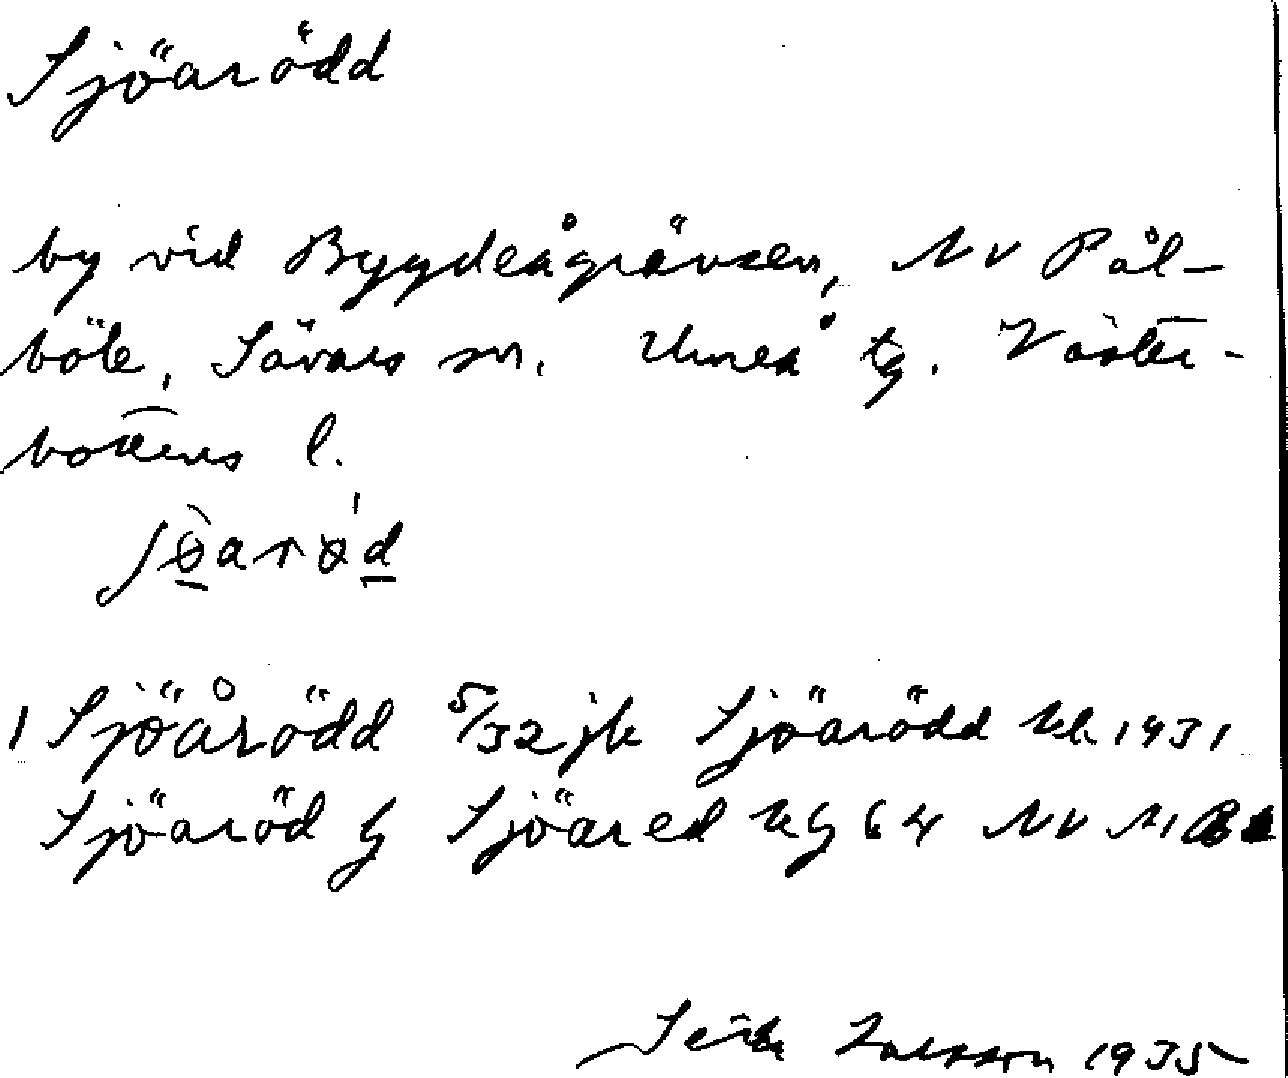 Sjöarödd
by vid Bygdeågränsen, NV Pål-
böle, Sävars sn. Umeå tg. Väster-
bottens l.
1 Sjöårödd 5/32 jk Sjöarödd 1931
Sjöaröd G Sjöared 64 NV
Larsson 1935